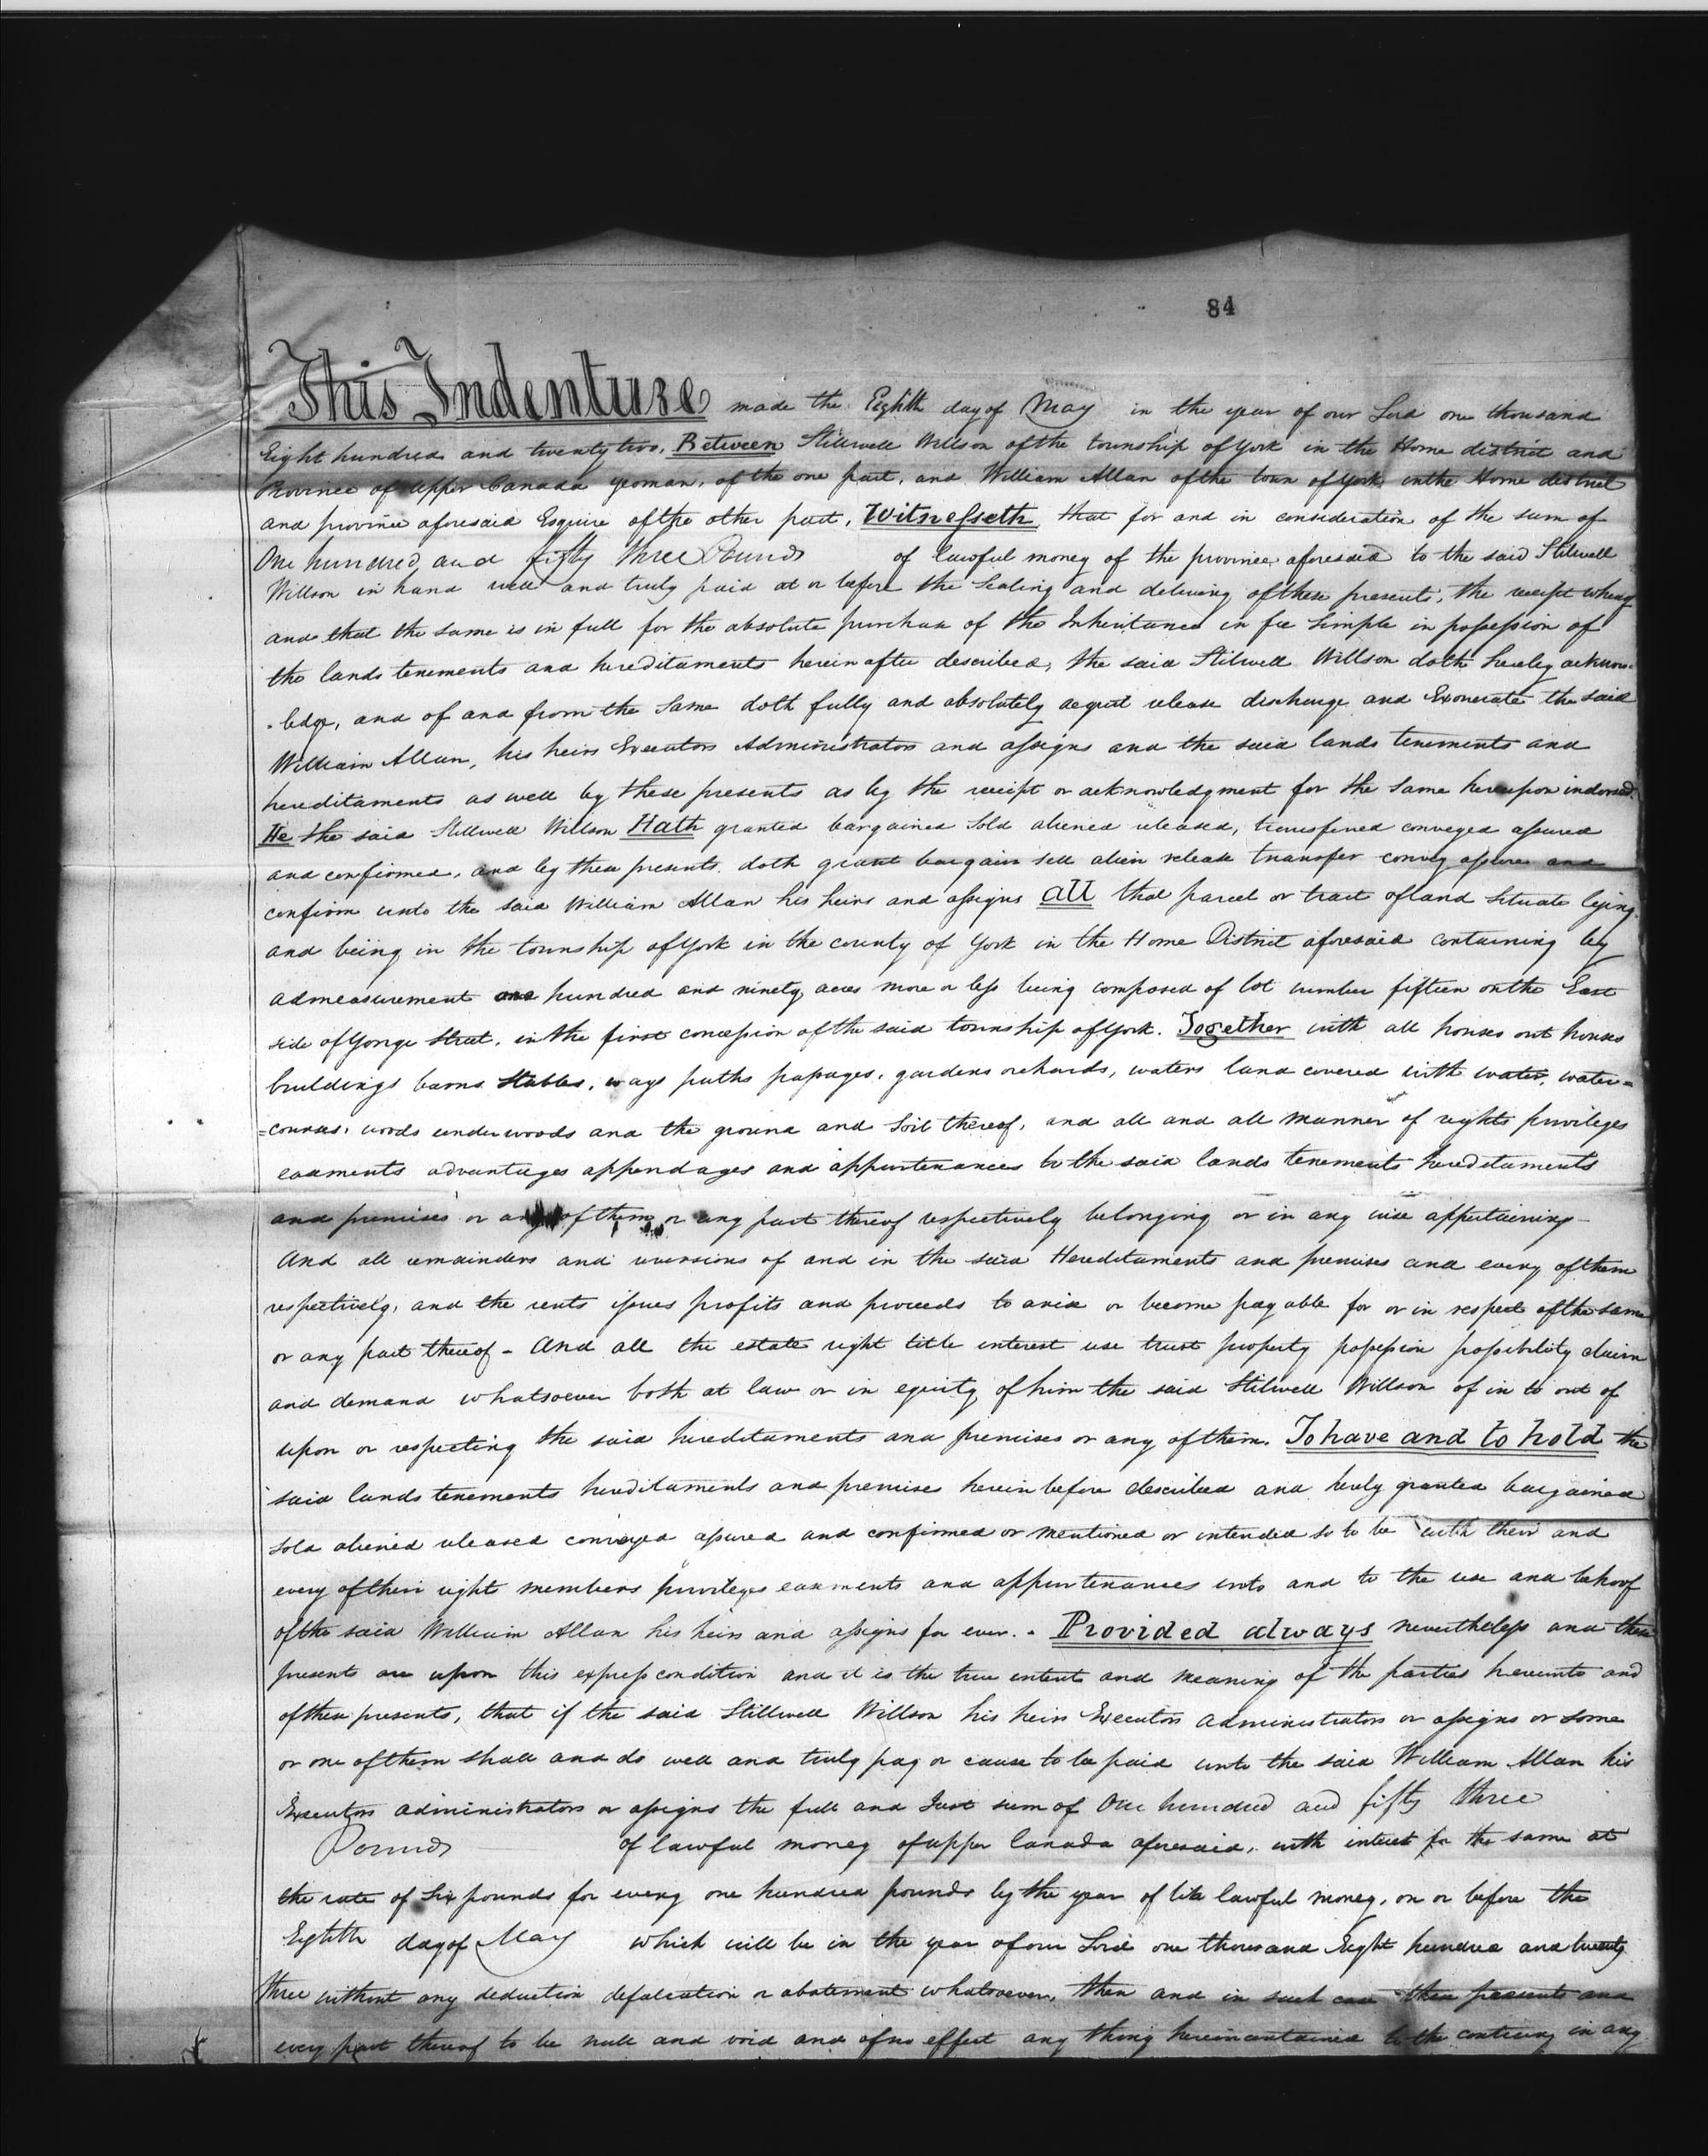 84
This Indenture made the Eighth day of May in the year of our Lord one thousand
Eight hundred and twenty two, Between Stillwell Willson of the township of York in the Home district and
Province of Upper Canada yeoman, of the one part, and William Allan of the town of York in the Home district
and province aforesaid Esquire of the other part, Witnesseth that for and in consideration of the sum of
One hundred and fifty three Pounds of lawful money of the province aforesaid to the said Stilwell
Willson in hand well and truly paid at or before the Sealing and delivery of these presents, the receipt whereof
and that the same is in full for the absolute purchase of the Inheritance in fee Simple in possession of
the lands tenements and hereditaments herein after described, the said Stilwell Willson doth hereby acknow-
-ledge, and of and from the same doth fully and absolutely acquit release discharge and Exonerate the said
William Allan, his heirs Executors Administrators and assigns and the said lands tenements and
hereditaments as well by these presents as by the receipt or acknowledgment for the same hereupon indorsed.
He the said Stillwell Willson Hath granted bargained sold aliened released, transferred conveyed assured
and confirmed, and by these presents doth grant bargain sell alien release transfer convey assure and
confirm unto the said William Allan his heirs and assigns all that parcel or tract of land situate lying
and being in the township of York in the county of York in the Home District aforesaid containing by
admeasurement one hundred and ninety acres more or less being composed of lot number fifteen on the East
side of Yonge Street, in the first concession of the said township of York. Together with all houses out houses
buildings barns stables, ways paths passages, gardens orchards, waters land covered with water, water=
=courses, woods underwoods and the ground and soil thereof, and all and all manner of rights privileges
easments advantages appendages and appurtenances to the said lands tenements hereditaments
and premises or any of them or any part thereof respectively belonging or in any wise appertaining-
And all remainders and reversions of and in the said Hereditaments and premises and every of them
respectively, and the rents issues profits and proceeds to arise or become payable for or in respect of the same
or any part thereof - And all the estate right title interest use trust property possession possibility claim
and demand whatsoever both at law or in equity of him the said Stilwell Willson of in to out of
upon or respecting the said hereditaments and premises or any of them. To have and to hold the
said lands tenements hereditaments and premises herein before described and hereby granted bargained
sold aliened released conveyed assured and confirmed or mentioned or intended so to be with their and
every of their right members privileges easments and appurtenances unto and to the use and behoof
of the said William Allan his heirs and assigns for ever. - Provided always nevertheless and these
presents are upon this express condition and it is the true intent and meaning of the parties hereunto and
of these presents, that if the said Stillwell Willson his heirs Executors administrators or assigns or some
or one of them shall and do well and truly pay or cause to be paid unto the said William Allan his
Executors administrators or assigns the full and Just sum of One hundred and fifty three
Pounds of lawful money of upper Canada aforesaid, with interest for the same at
the rate of Six pounds for every one hundred pounds by the year of like lawful money, on or before the
Eighth day of May which will be in the year of our Lord one thousand Eight hundred and twenty
three without any deduction defalcation or abatement whatsoever, then and in such case these presents and
every part thereof to be null and void and of no effect any thing herein contained to the contrary in any